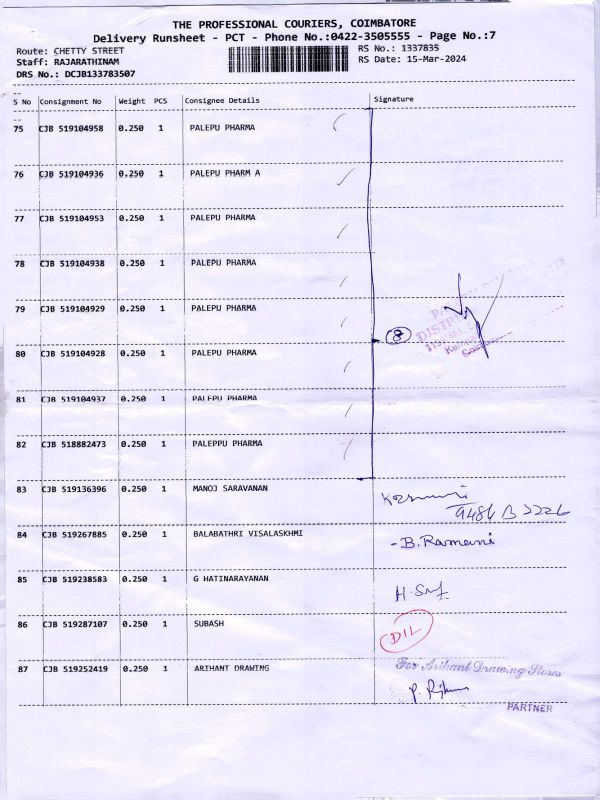 THE PROFESSIONAL COURIERS, COIMBATORE
Delivery Runsheet - PCT - Phone No.:0422-3505555 - Page No.:7
Route: CHETTY STREET RS No.: 1337835
Staff: RAJARATHINAM RS Date: 15-Mar-2024
DRS No.: DCJB133783507
S No Consignment No Weight PCS Consignee Details Signature
75 CJB 519104958 0.250 1 PALEPU PHARMA
76 CJB 519104936 0.250 1 PALEPU PHARM A
77 CJB 519104953 0.250 1 PALEPU PHARMA
78 CJB 519104938 0.250 1 PALEPU PHARMA
79 CJB 519104929 0.250 1 PALEPU PHARMA
8
80 CJB 519104928 0.250 1 PALEPU PHARMA
81 CJB 519104937 0.250 1 PALEPU PHARMA
82 CJB 518882473 0.250 1 PALEPPU PHARMA
83 CJB 519136396 0.250 1 MANOJ SARAVANAN
84 CJB 519267885 0.250 1 BALABATHRI VISALASKHMI - B. Ramani
85 CJB 519238583 0.250 1 G HATINARAYANAN
86 CJB 519287107 0.250 1 SUBASH DIL
87 CJB 519252419 0.250 1 ARIHANT DRAWING For Arihant Drawing Stores
PARTNER